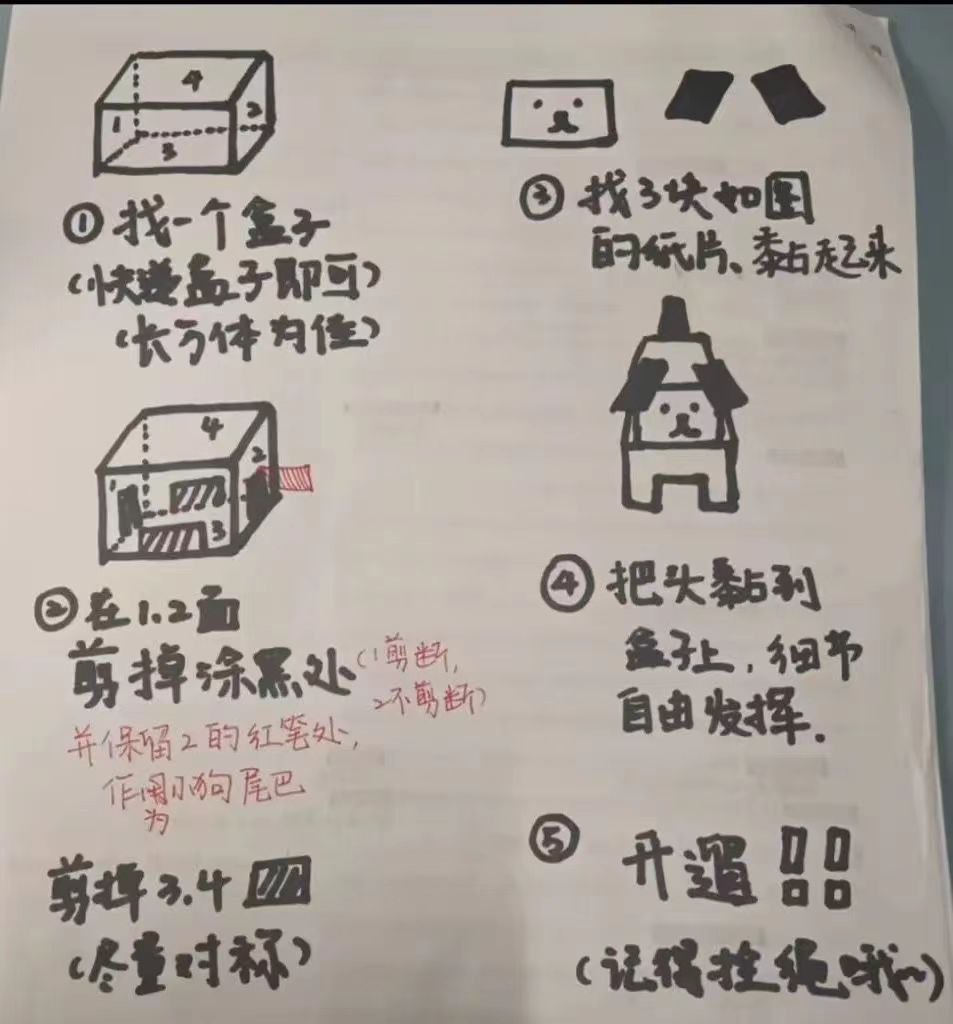 4
1
2
3
① 找一个盒子
(快递盒子即可)
(长方体为佳)
4
1
2
3
② 在1.2面
剪掉涂黑处(1剪断,
2不剪断)
并保留2的红笔处,
作为小狗尾巴
剪掉3.4
(尽量对称)
③ 找3块如图
的纸片、黏起来
④ 把头黏到
盒子上,细节
自由发挥.
⑤ 开遛!!
(记得拴绳哦~)